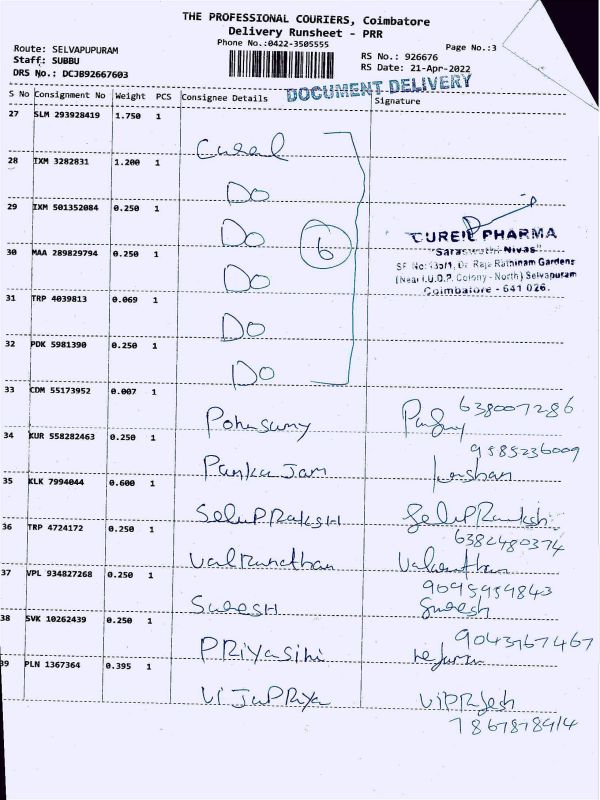 THE PROFESSIONAL COURIERS, Coimbatore
Delivery Runsheet - PRR
Phone No.:0422-3505555
Page No.:3
Route: SELVAPUPURAM
Staff: SUBBU
DRS No.: DCJB92667603
RS No.: 926676
RS Date: 21-Apr-2022
DOCUMENT DELIVERY
S No Consignment No Weight PCS Consignee Details Signature
27 SLM 293928419 1.750 1
Cureel
28 IXM 3282831 1.200 1
Do
29 IXM 501352084 0.250 1
Do
6
CUREIL PHARMA
"Saraswathi Nivas"
SF No: 13b/1, Dr. Raja Rathinam Gardens
(Near I.U.D.P. Colony - North) Selvapuram
Coimbatore - 641 026.
30 MAA 289829794 0.250 1
Do
31 TRP 4039813 0.069 1
Do
32 PDK 5981390 0.250 1
Do
33 CDM 55173952 0.007 1
Ponsamy 638007286
34 KUR 558282463 0.250 1
Pankajam 9585236009
35 KLK 7994044 0.600 1
SelvPRAKSH
6382480374
36 TRP 4724172 0.250 1
37 VPL 934827268 0.250 1
9095959843
SURESH Suresh
38 SVK 10262439 0.250 1
9043767467
PRiyasini
39 PLN 1367364 0.395 1
ViJaPRiya
7867878914